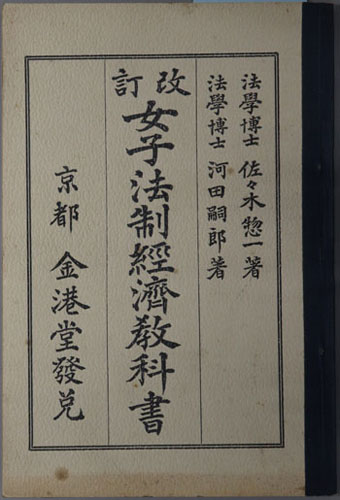 法學博士 佐々木惣一著
法學博士 河田嗣郎著
改訂
女子法制經濟敎科書
京都 金港堂發兌